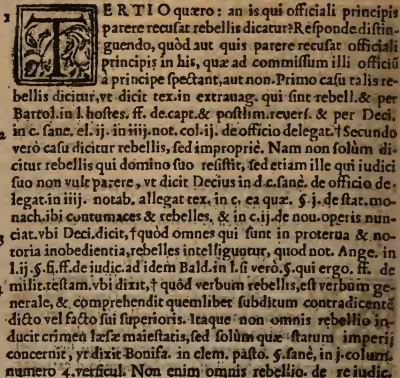 1 TERTIO quæro: an is. qui officiali principis
parere recusat rebellis dicatur? Respõde distin-
guendo, quòd aut quis parere recusat officiali
principis in his, quæ ad commissum illi officiũ
a principe spectant, aut non. Primo casu talis re-
bellis dicitur, vt dicit tex. in extrauag. qui sint rebell. & per
Bartol. in l. hostes. ff. de capt. & postlim. reuers. & per Deci.
2 in c. sane. el. ij. in iiij. not. col. ij. de officio delegat. † Secundo
verò casu dicitur rebellis, sed impropriè. Nam non solùm di-
citur rebellis qui domino suo resistit, sed etiam ille qui iudici
suo non vult parere, vt dicit Decius in d. c. sanè. de officio de-
legat. in iiij. notab. allegat tex. in c. ea quæ. §. j. de stat. mo-
nach. ibi contumaces & rebelles, & in c. ij. de nou. operis nun-
3 ciat. vbi Deci. dicit, † quòd omnes qui sunt in proterua & no-
toria inobedientia, rebelles intelliguntur, quod not. Ange. in
l. ij. §. fi. ff. de iudic. ad idem Bald. in l. si verò. §. qui ergo. ff. de
4 milit. testam. vbi dixit, † quòd verbum rebellis, est verbum ge-
nerale, & comprehendit quemlibet subditum contradicentẽ
dicto vel facto sui superioris. Itaque non omnis rebellio in-
ducit crimen læsæ maiestatis, sed solùm quæ statum imperij
concernit, vt dixit Bonifa. in clem. pasto. §. sanè, in j. colum.
numero 4. versicul. Non enim omnis rebellio. de re iudic.